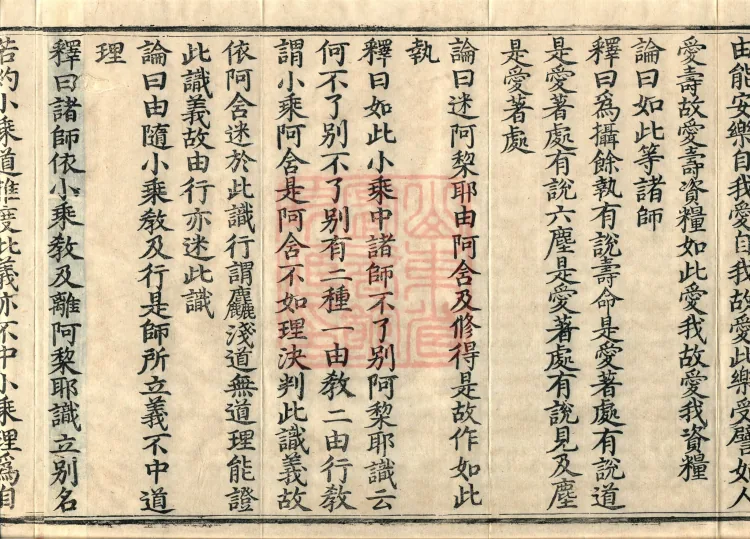 由能安樂自我愛自我故愛此樂受譬如人
愛壽故愛壽資糧如此愛我故愛我資糧
論曰如此等諸師
釋曰爲攝餘執有說壽命是愛著處有說道
是愛著處有說六塵是愛著處有說見及塵
是愛著處
論曰迷阿黎耶由阿含及修得是故作如此
執
釋曰如此小乘中諸師不了别阿黎耶識云
何不了别不了别有二種一由教二由行教
謂小乘阿含是阿含不如理決判此識義故
依阿含迷於此識行謂麤淺道無道理能證
此識義故由行亦迷此識
論曰由隨小乘教及行是師所立義不中道
理
釋曰諸師依小乘教及離阿黎耶識立别名
若約小乘道雖度此義亦不中小乘理爲自